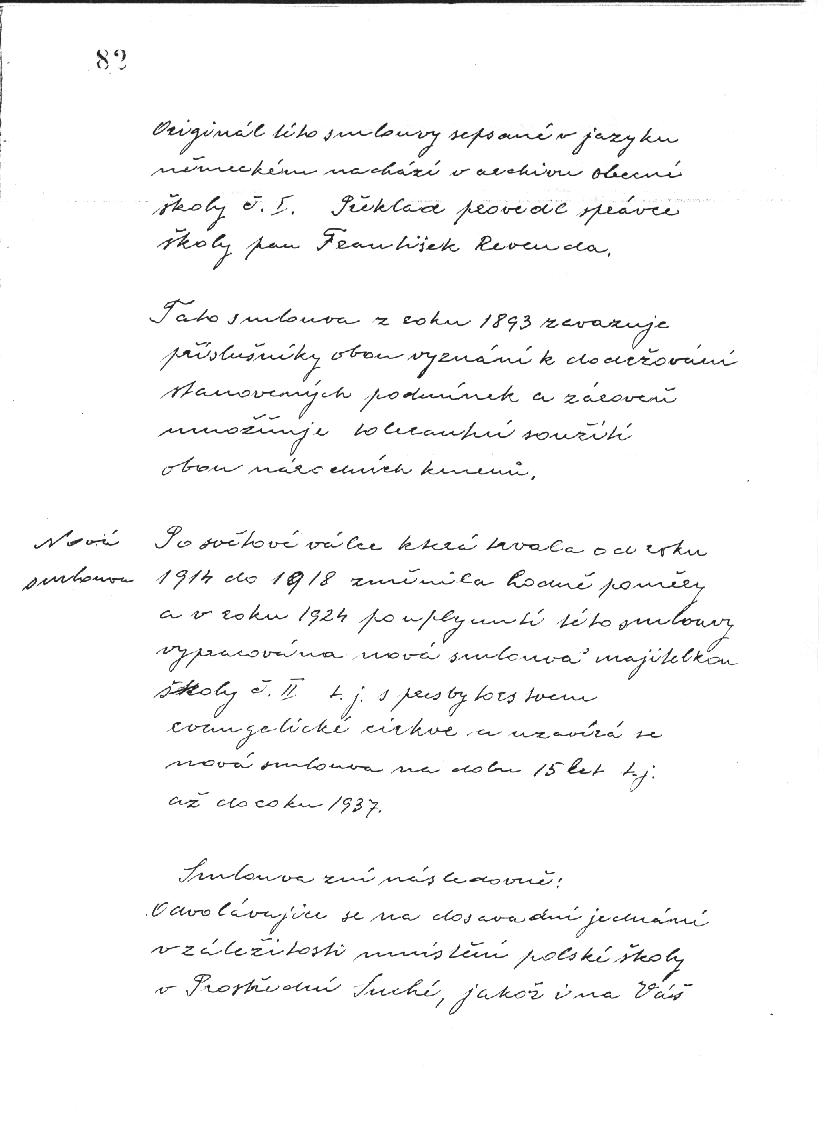 82
Originál této smlouvy sepsané v jazyku
německém nachází v archivu obecní
školy č. I. Překlad provedl správce
školy pan František Revenda.
Tato smlouva z roku 1893 zavazuje
příslušníky obou vyznání k dodržování
stanovených podmínek a zároveň
umožňuje tolerantní soužití
obou národních kmenů.
Nová
smlouva
Po světové válce která trvala od roku
1914 do 1918 změnila hodně poměry
a v roku 1924 po uplynutí této smlouvy
vypracována nová smlouva majitelkou
školy č. II t.j. s presbytorstvem
evangelické církve a uzavírá se
nová smlouva na dobu 15 let t.j.
až do roku 1937.
Smlouva zní následovně:
Odvolávajíce se na dosavadní jednání
v záležitosti umístění polské školy
v Prostřední Suché, jakož i na Váš